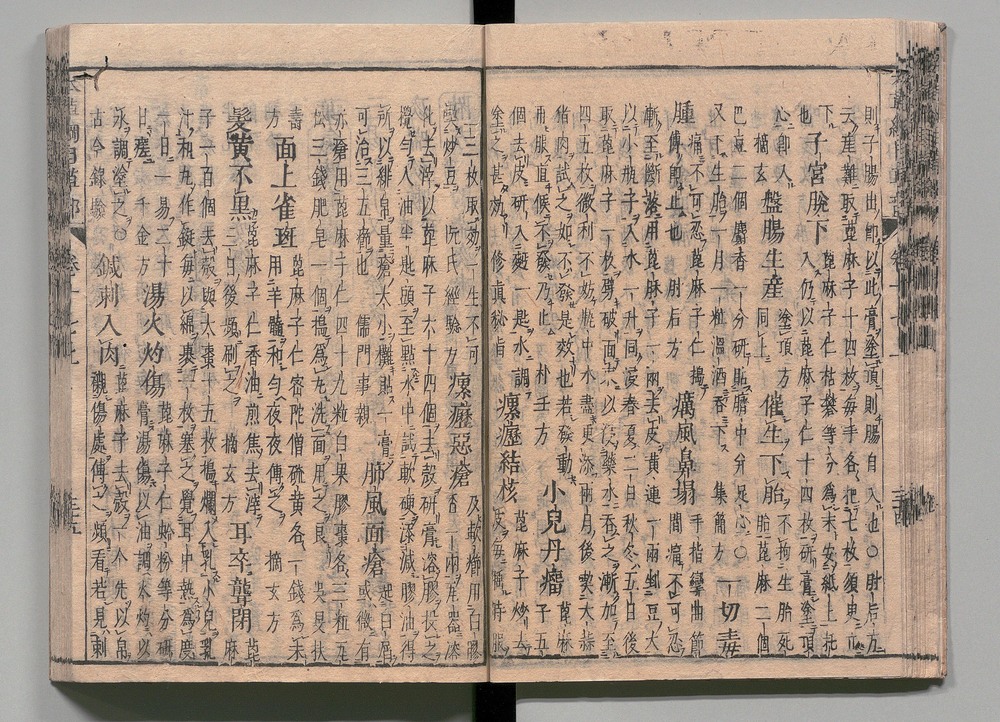 則子腸出即以此膏塗頂則腸自入也○肘后方
云產難取蓖麻子十四枚每手各把七枚須臾立
下 子宮脫下 蓖麻子仁枯礬等分為末安紙上托
也 入仍以蓖麻子仁十四枚研膏塗頂
心即入 盤腸生產 塗頂方同上 催生下胎 不拘生胎死胎蓖麻二個
巴豆一個麝香一分研貼臍中并足心○
又下生胎一月一粒溫酒吞下 集簡方 一切毒
腫 痛不可忍蓖麻子仁搗傅即止也 肘后方 癘風鼻塌 手指攣曲節間痛不可忍
漸至斷落用蓖麻子一兩去皮黃連一兩剉豆大
以小瓶子入水一升同浸春夏三日秋冬五日後
取蓖麻子一枚劈破面東以浸藥水吞之漸加至
四五枚微利不妨瓶中水盡更添兩月後喫大蒜
豬肉試之如不發是效也若發動
再服直候不發乃止 杜壬方 小兒丹瘤 蓖麻子五
個去皮研入麪一匙水調
塗之甚效 修真秘旨 瘰癧結核 蓖麻子炒去皮每臨時服
二三枚取效一生不可
喫炒豆 阮氏經驗方 瘰癧惡瘡 及軟癤用白膠香一兩瓦器溶
化去滓以蓖麻子六十四個去殼研膏溶膠投之
攪勻入油半匙頭至點水中試軟硬添減膠油得
所以緋帛量瘡大小攤貼一膏
可治三五癤也 儒門事親 肺風面瘡 或起白屑或微有
赤瘡用蓖麻子仁四十九粒白果膠棗各三粒瓦
松三錢肥皂一個搗為丸洗面用之良 吳旻扶
壽方 面上雀斑 蓖麻子仁密陀僧硫黃各一錢為末
用羊髓和勻夜夜傅之 摘玄方
髮黃不黑 蓖麻子仁香油煎焦去滓三日後頻刷之 摘玄方 耳卒聾閉 蓖麻
子一百個去殼與大棗十五枚搗爛入乳小兒乳
汁和丸作鋌每以綿裹一枚塞之覺耳中熱為度
一日一易二十
日瘥 千金方 湯火灼傷 蓖麻子仁蛤粉等分研膏湯傷以油調火灼以
水調塗之○
古今錄驗 鍼刺入肉 蓖麻子去殼一个先以帛襯傷處傅之頻看若見刺